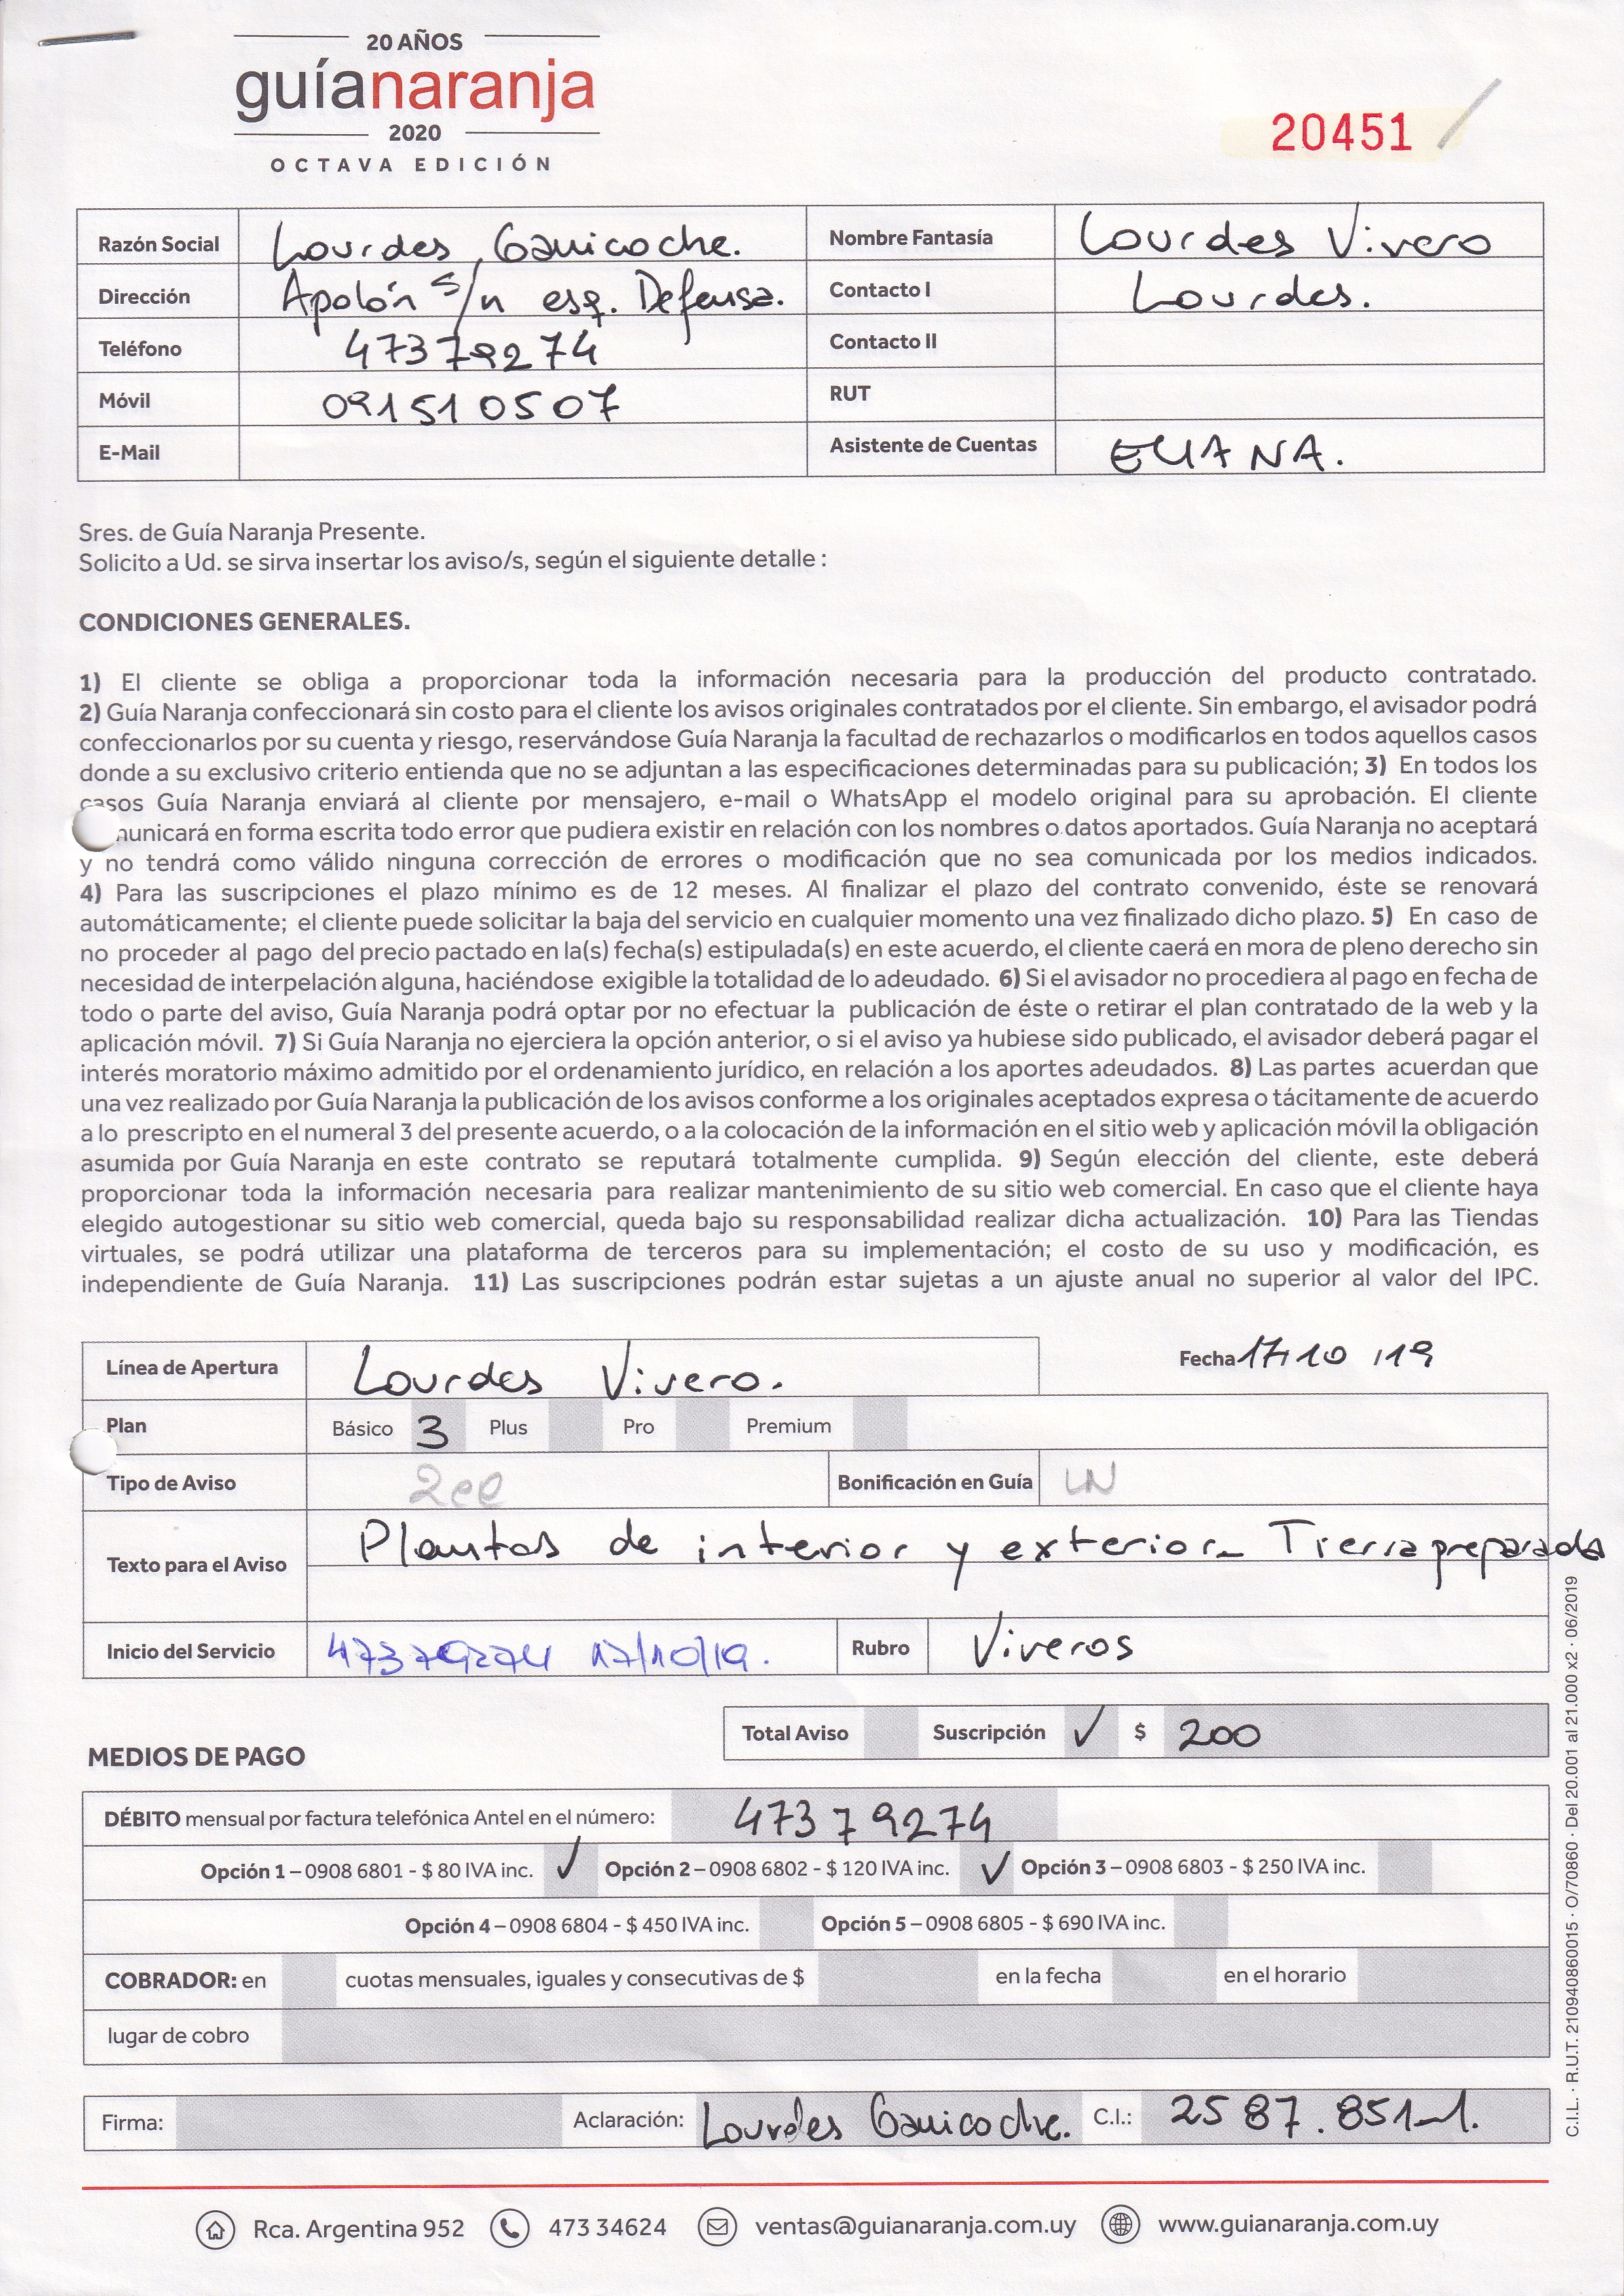 20 AÑOS
guíanaranja
2020
OCTAVA EDICIÓN
20451
Razón Social Lourdes Ganicoche. Nombre Fantasía Lourdes Vivero
Dirección Apolón s/n esq. Defensa. Contacto I Lourdes.
Teléfono 47379274 Contacto II
Móvil 091510507 RUT
E-Mail Asistente de Cuentas ELIANA.
Sres. de Guía Naranja Presente.
Solicito a Ud. se sirva insertar los aviso/s, según el siguiente detalle :
CONDICIONES GENERALES.
1) El cliente se obliga a proporcionar toda la información necesaria para la producción del producto contratado.
2) Guía Naranja confeccionará sin costo para el cliente los avisos originales contratados por el cliente. Sin embargo, el avisador podrá
confeccionarlos por su cuenta y riesgo, reservándose Guía Naranja la facultad de rechazarlos o modificarlos en todos aquellos casos
donde a su exclusivo criterio entienda que no se adjuntan a las especificaciones determinadas para su publicación; 3) En todos los
casos Guía Naranja enviará al cliente por mensajero, e-mail o WhatsApp el modelo original para su aprobación. El cliente
municará en forma escrita todo error que pudiera existir en relación con los nombres o datos aportados. Guía Naranja no aceptará
y no tendrá como válido ninguna corrección de errores o modificación que no sea comunicada por los medios indicados.
4) Para las suscripciones el plazo mínimo es de 12 meses. Al finalizar el plazo del contrato convenido, éste se renovará
automáticamente; el cliente puede solicitar la baja del servicio en cualquier momento una vez finalizado dicho plazo. 5) En caso de
no proceder al pago del precio pactado en la(s) fecha(s) estipulada(s) en este acuerdo, el cliente caerá en mora de pleno derecho sin
necesidad de interpelación alguna, haciéndose exigible la totalidad de lo adeudado. 6) Si el avisador no procediera al pago en fecha de
todo o parte del aviso, Guía Naranja podrá optar por no efectuar la publicación de éste o retirar el plan contratado de la web y la
aplicación móvil. 7) Si Guía Naranja no ejerciera la opción anterior, o si el aviso ya hubiese sido publicado, el avisador deberá pagar el
interés moratorio máximo admitido por el ordenamiento jurídico, en relación a los aportes adeudados. 8) Las partes acuerdan que
una vez realizado por Guía Naranja la publicación de los avisos conforme a los originales aceptados expresa o tácitamente de acuerdo
a lo prescripto en el numeral 3 del presente acuerdo, o a la colocación de la información en el sitio web y aplicación móvil la obligación
asumida por Guía Naranja en este contrato se reputará totalmente cumplida. 9) Según elección del cliente, este deberá
proporcionar toda la información necesaria para realizar mantenimiento de su sitio web comercial. En caso que el cliente haya
elegido autogestionar su sitio web comercial, queda bajo su responsabilidad realizar dicha actualización. 10) Para las Tiendas
virtuales, se podrá utilizar una plataforma de terceros para su implementación; el costo de su uso y modificación, es
independiente de Guía Naranja. 11) Las suscripciones podrán estar sujetas a un ajuste anual no superior al valor del IPC.
Línea de Apertura Lourdes Vivero. Fecha 17/10/19
Plan Básico 3 Plus Pro Premium
Tipo de Aviso Bonificación en Guía LN
Texto para el Aviso Plantas de interior y exterior_ Tierra preparada
Inicio del Servicio 47379274 17/10/19. Rubro Viveros
Total Aviso Suscripción ✓ $ 200
MEDIOS DE PAGO
DÉBITO mensual por factura telefónica Antel en el número: 47379274
Opción 1 – 0908 6801 - $ 80 IVA inc. ✓ Opción 2 – 0908 6802 - $ 120 IVA inc. ✓ Opción 3 – 0908 6803 - $ 250 IVA inc.
Opción 4 – 0908 6804 - $ 450 IVA inc. Opción 5 – 0908 6805 - $ 690 IVA inc.
COBRADOR: en cuotas mensuales, iguales y consecutivas de $ en la fecha en el horario
lugar de cobro
Firma: Aclaración: Lourdes Ganicoche. C.I.: 2587.851-1.
C.I.L. · R.U.T. 210940860015 · O/70860 · Del 20.001 al 21.000 x2 · 06/2019
Rca. Argentina 952 473 34624 ventas@guianaranja.com.uy www.guianaranja.com.uy